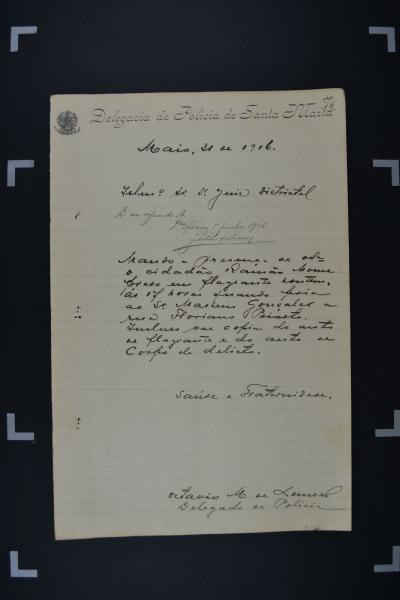 Delegacia de Policia de Santa Maria
Maio, 31 de 1916.
Illmº Sr Dr Juiz Districtal
D. ao escrivão A.
1º junho 1916
Mando a presença de
o cidadão Ramão
preso em flagrante hontem
ás 17 horas quando feria
ao Sr Gonçalves a
rua Floriano Peixoto.
Incluso vae copia do auto
de flagrante e do auto de
Corpo de delicto.
Saúde e Fraternidade.
Octavio M. de Lemos
Delegado de Policia